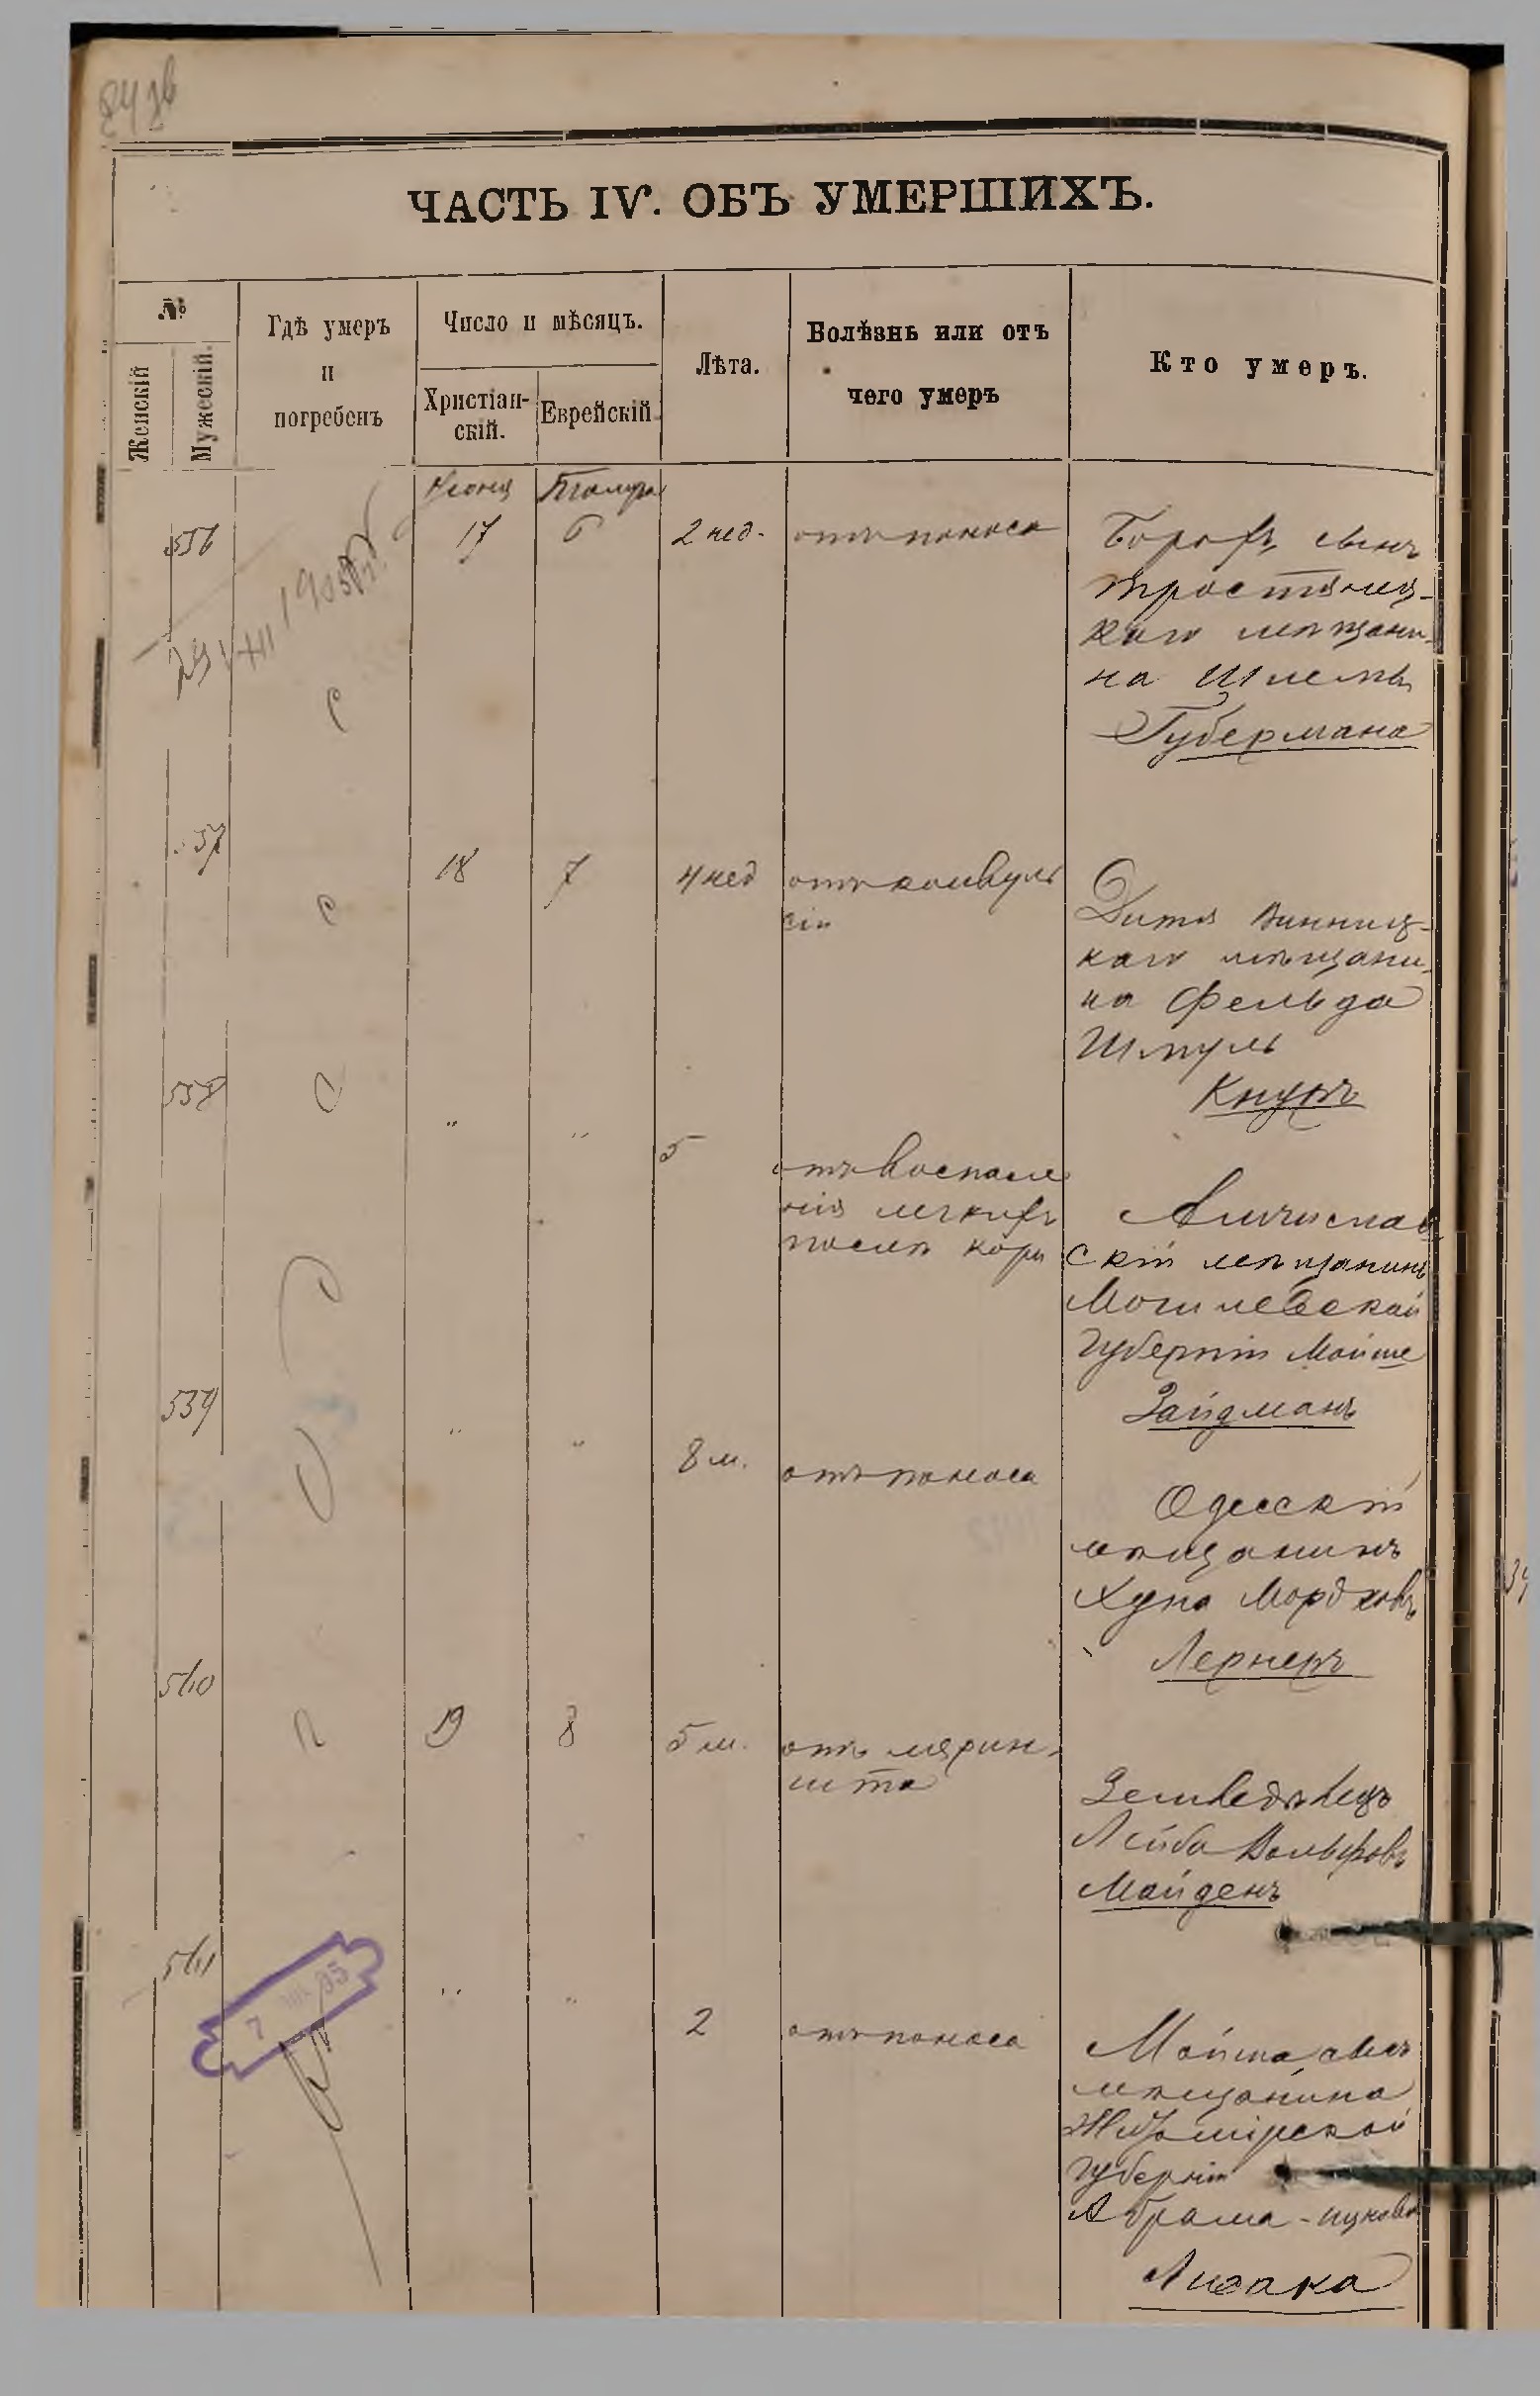 ЧАСТЬ IV. ОБЪ УМЕРШИХЪ.
№
Женскій
Мужескій.
Гдѣ умеръ
и
погребенъ
Число и мѣсяцъ.
Христіан-
скій.
Еврейскій
Лѣта.
Болѣзнь или отъ
чего умеръ
Кто умеръ.
536
17
6
2 нед.
отъ поноса
Борохъ сынъ
тростянец-
каго мѣщани-
на Шлемы
Губермана
537
18
7
4 нед
отъ конвуль
сіи
Дитя Винниц-
каго мѣщани-
на Фельда
Шмуль
Кнуръ
538
"
"
5
отъ воспале
нія легкихъ
послѣ кори
скій мѣщанинъ
Могилевской
губерніи Мойше
Зайдманъ
539
"
"
8 м.
отъ поноса
Одесскій
мѣщанинъ
Мордковъ
Лернеръ
540
19
8
5 м.
отъ
Земледѣлецъ
Лейба Вольфовъ
Майденъ
541
"
"
2
отъ поноса
Мойша сынъ
мѣщанина
Житомірской
губерніи
Абрама-Ицкова
Лизака